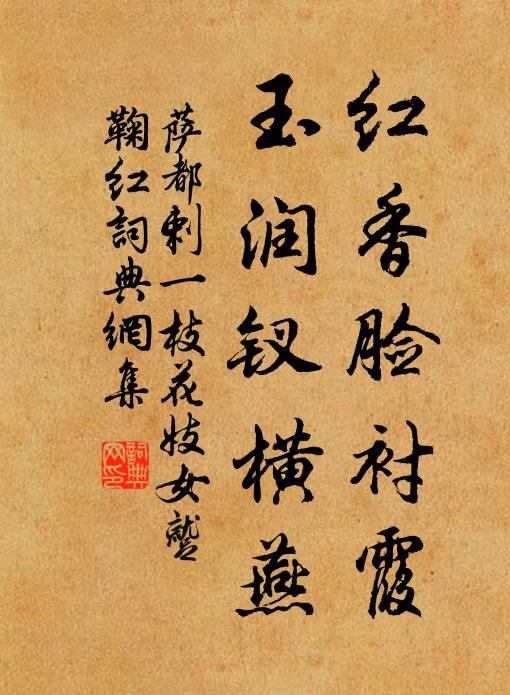 红香脸衬霞
玉润钗横燕
萨都剌一枝花妓女蹵
鞠红词典網集
詞典
网印